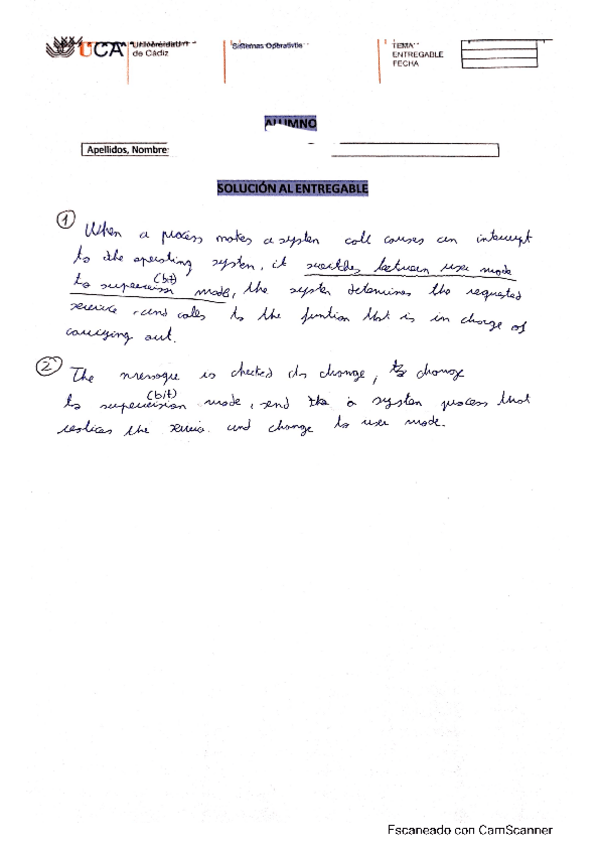 UCA Universidad de Cádiz
Sistemas Operativos
TEMA
ENTREGABLE
FECHA
ALUMNO
Apellidos, Nombre:
SOLUCIÓN AL ENTREGABLE
① When a process makes a system call causes an interrupt
to the operating system, it switches between user mode
(bit)
to supervision mode, the system determines the requested
service, and calls to the funtion that is in charge of
carrying out.
② The message is checked its change, to change
(bit)
to supervision mode, send the a system process that
the and change to user mode.
Escaneado con CamScanner